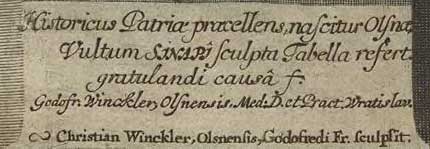 Historicus Patriæ præcellens, nascitur Olsna,
Vultum SINAPI sculpta Tabella refert.
gratulandi causâ f.
Godofr. Winckler, Olsnensis. Med. D. et Pract. Wratislav.
Christian Winckler, Olsnensis, Godofredi Fr. sculpsit.